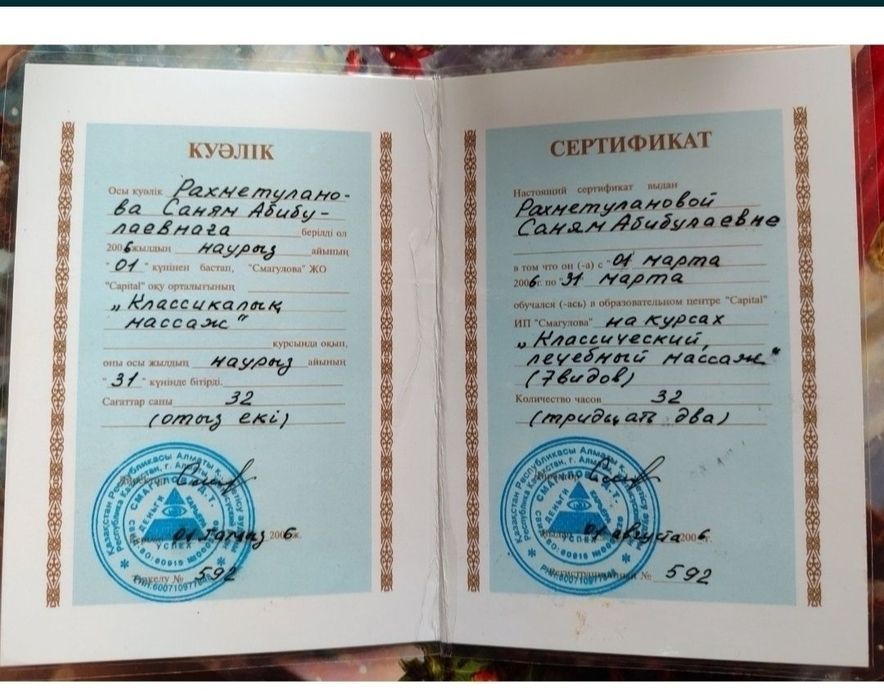 КУӘЛІК
Осы куәлік Рахметулано-
ва Саням Абибу-
лаевнаға берілді ол
2006 жылдың наурыз айының
"01" күнінен бастап, "Смагулова" ЖО
"Capital" оқу орталығының
„Классикалық
массаж"
курсында оқып,
оны осы жылдың наурыз айының
"31" күнінде бітірді.
Сағаттар саны 32
(отыз екі)
01 тамыз 2006 ж.
Тіркелу № 592
СЕРТИФИКАТ
Настоящий сертификат выдан
Рахметулановой
Саням Абибулаевне
в том что он (-а) с "01 марта
2006г. по "31 марта
обучался (-ась) в образовательном центре "Capital"
ИП "Смагулова" на курсах
„Классический,
лечебный массаж"
(7 видов)
Количество часов 32
(тридцать два)
Директор
01 августа 2006 г.
Регистрационный № 592
Қазақстан Республикасы Алматы қ.
Республика Казахстан, г. Алматы
СМАГУЛОВА Д.Т.
ДЕНЬГИ
КАРЬЕРА
УСПЕХ